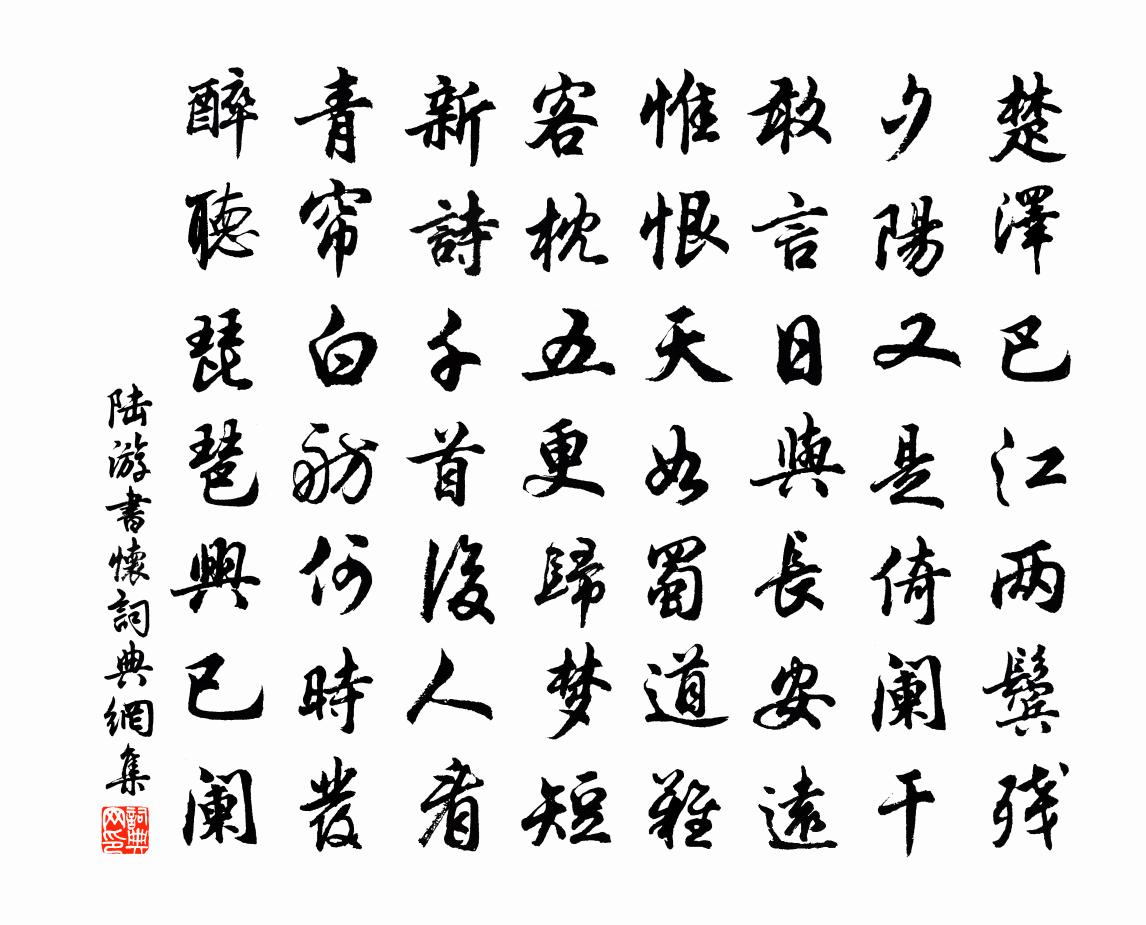 楚澤巴江两鬓残
夕陽又是倚阑干
敢言日與長安遠
惟恨天如蜀道難
客枕五更歸梦短
新詩千首後人看
青帘白舫何時發
醉聽琵琶興已阑
陆游書懷詞典網集
詞典网印